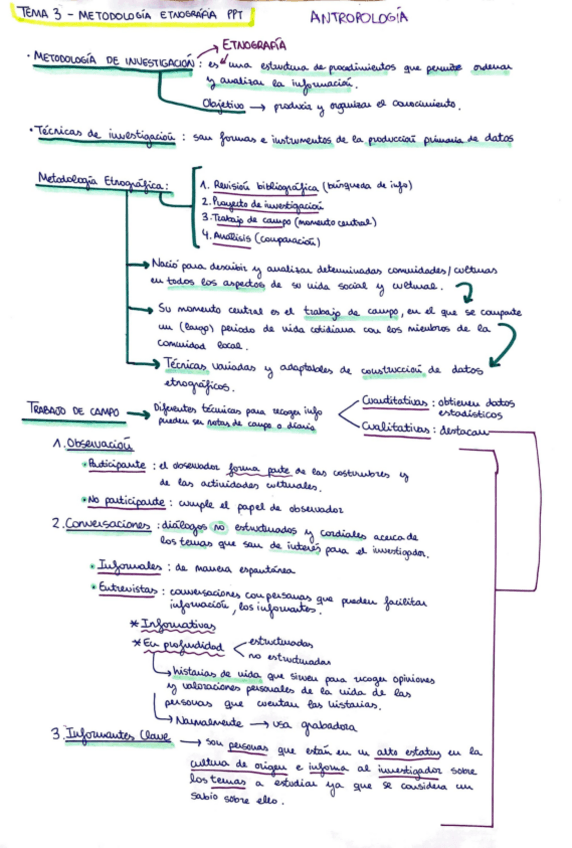 TEMA 3 - METODOLOGÍA ETNOGRAFÍA PPT
ANTROPOLOGÍA
ETNOGRAFÍA
· METODOLOGÍA DE INVESTIGACIÓN : es una estructura de procedimientos que permite ordenar
y analizar la información.
Objetivo → producir y organizar el conocimiento.
· Técnicas de investigación : son formas e instrumentos de la producción primaria de datos
Metodología Etnográfica :
1. Revisión bibliográfica (búsqueda de info)
2. Proyecto de investigación
3. Trabajo de campo (momento central)
4. Análisis (comparación)
Nació para describir y analizar determinadas comunidades/culturas
en todos los aspectos de su vida social y cultural.
Su momento central es el trabajo de campo, en el que se comparte
un (largo) periodo de vida cotidiana con los miembros de la
comunidad local.
Técnicas variadas y adaptables de construcción de datos
etnográficos.
TRABAJO DE CAMPO → Diferentes técnicas para recoger info
pueden ser notas de campo o diario
Cuantitativas : obtienen datos
estadísticos
Cualitativas : destacan
1. Observación
· Participante : el observador forma parte de las costumbres y
de las actividades culturales.
· No participante : cumple el papel de observador
2. Conversaciones : diálogos no estructurados y cordiales acerca de
los temas que son de interés para el investigador.
· Informales : de manera espontánea
· Entrevistas : conversaciones con personas que pueden facilitar
información, los informantes.
* Informativas
* En profundidad
estructuradas
no estructuradas
historias de vida que sirven para recoger opiniones
y valoraciones personales de la vida de las
personas que cuentan las historias.
Normalmente → usa grabadora
3. Informantes Clave → son personas que están en un alto estatus en la
cultura de origen e informa al investigador sobre
los temas a estudiar ya que se considera un
sabio sobre ello.